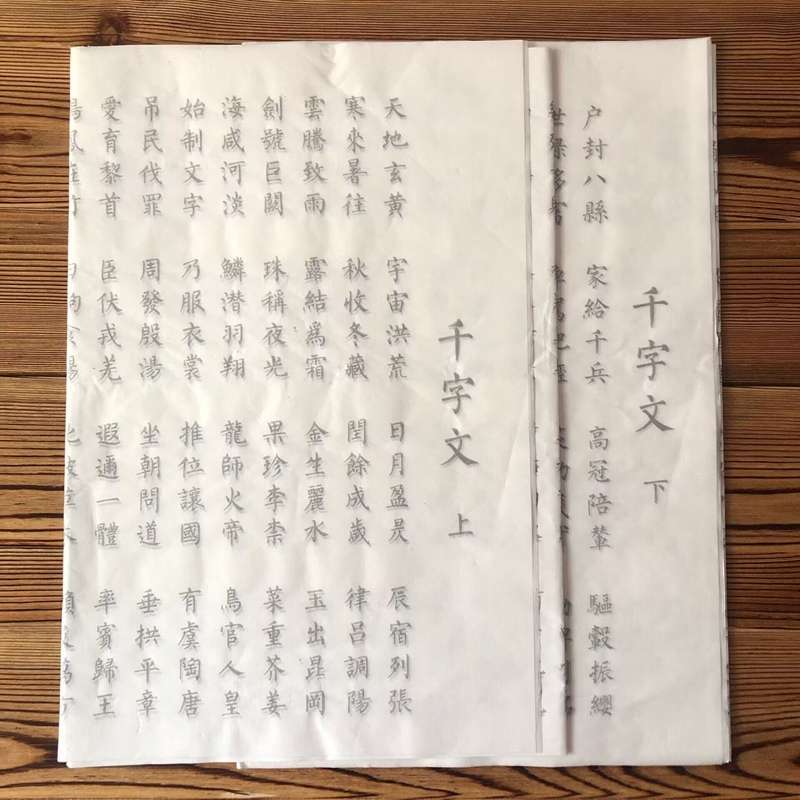 千字文 上
天地玄黃 宇宙洪荒 日月盈昃 辰宿列張
寒來暑往 秋收冬藏 閏餘成歲 律呂調陽
雲騰致雨 露結爲霜 金生麗水 玉出昆岡
劍號巨闕 珠稱夜光 果珍李柰 菜重芥姜
海咸河淡 鱗潛羽翔 龍師火帝 鳥官人皇
始制文字 乃服衣裳 推位讓國 有虞陶唐
吊民伐罪 周發殷湯 坐朝問道 垂拱平章
愛育黎首 臣伏戎羌 遐邇一體 率賓歸王
千字文 下
户封八縣 家給千兵 高冠陪輦 驅轂振纓